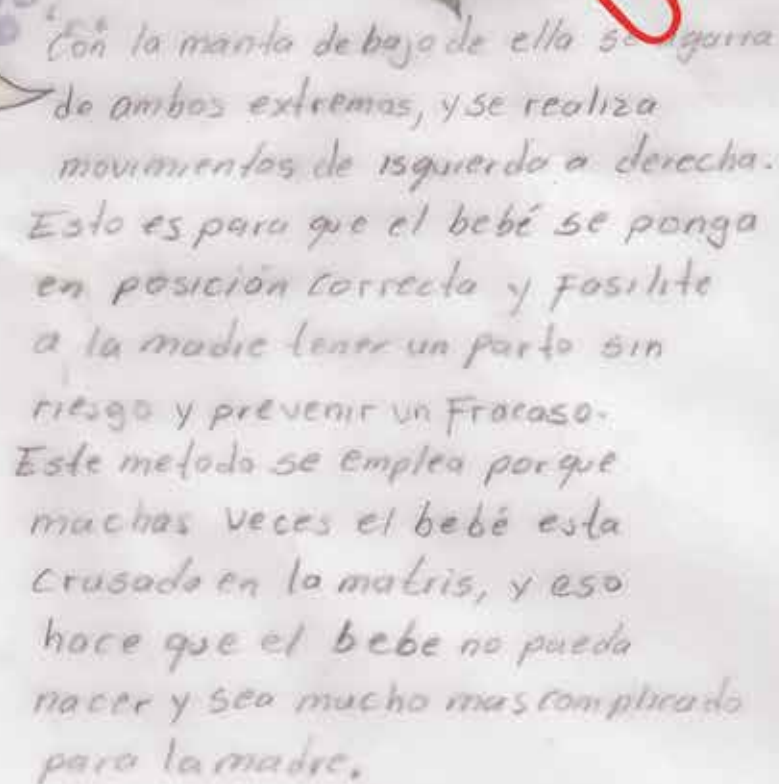 Con la manta debajo de ella se agarra
de ambos extremos, y se realiza
movimientos de isguierda a derecha.
Esto es para que el bebé se ponga
en posición correcta y Fasilite
a la madre tener un parto sin
riesgo y prevenir un Fracaso.
Este metodo se emplea porque
muchas veces el bebé esta
crusado en la matris, y eso
hace que el bebe no pueda
nacer y sea mucho mas complicado
para la madre.